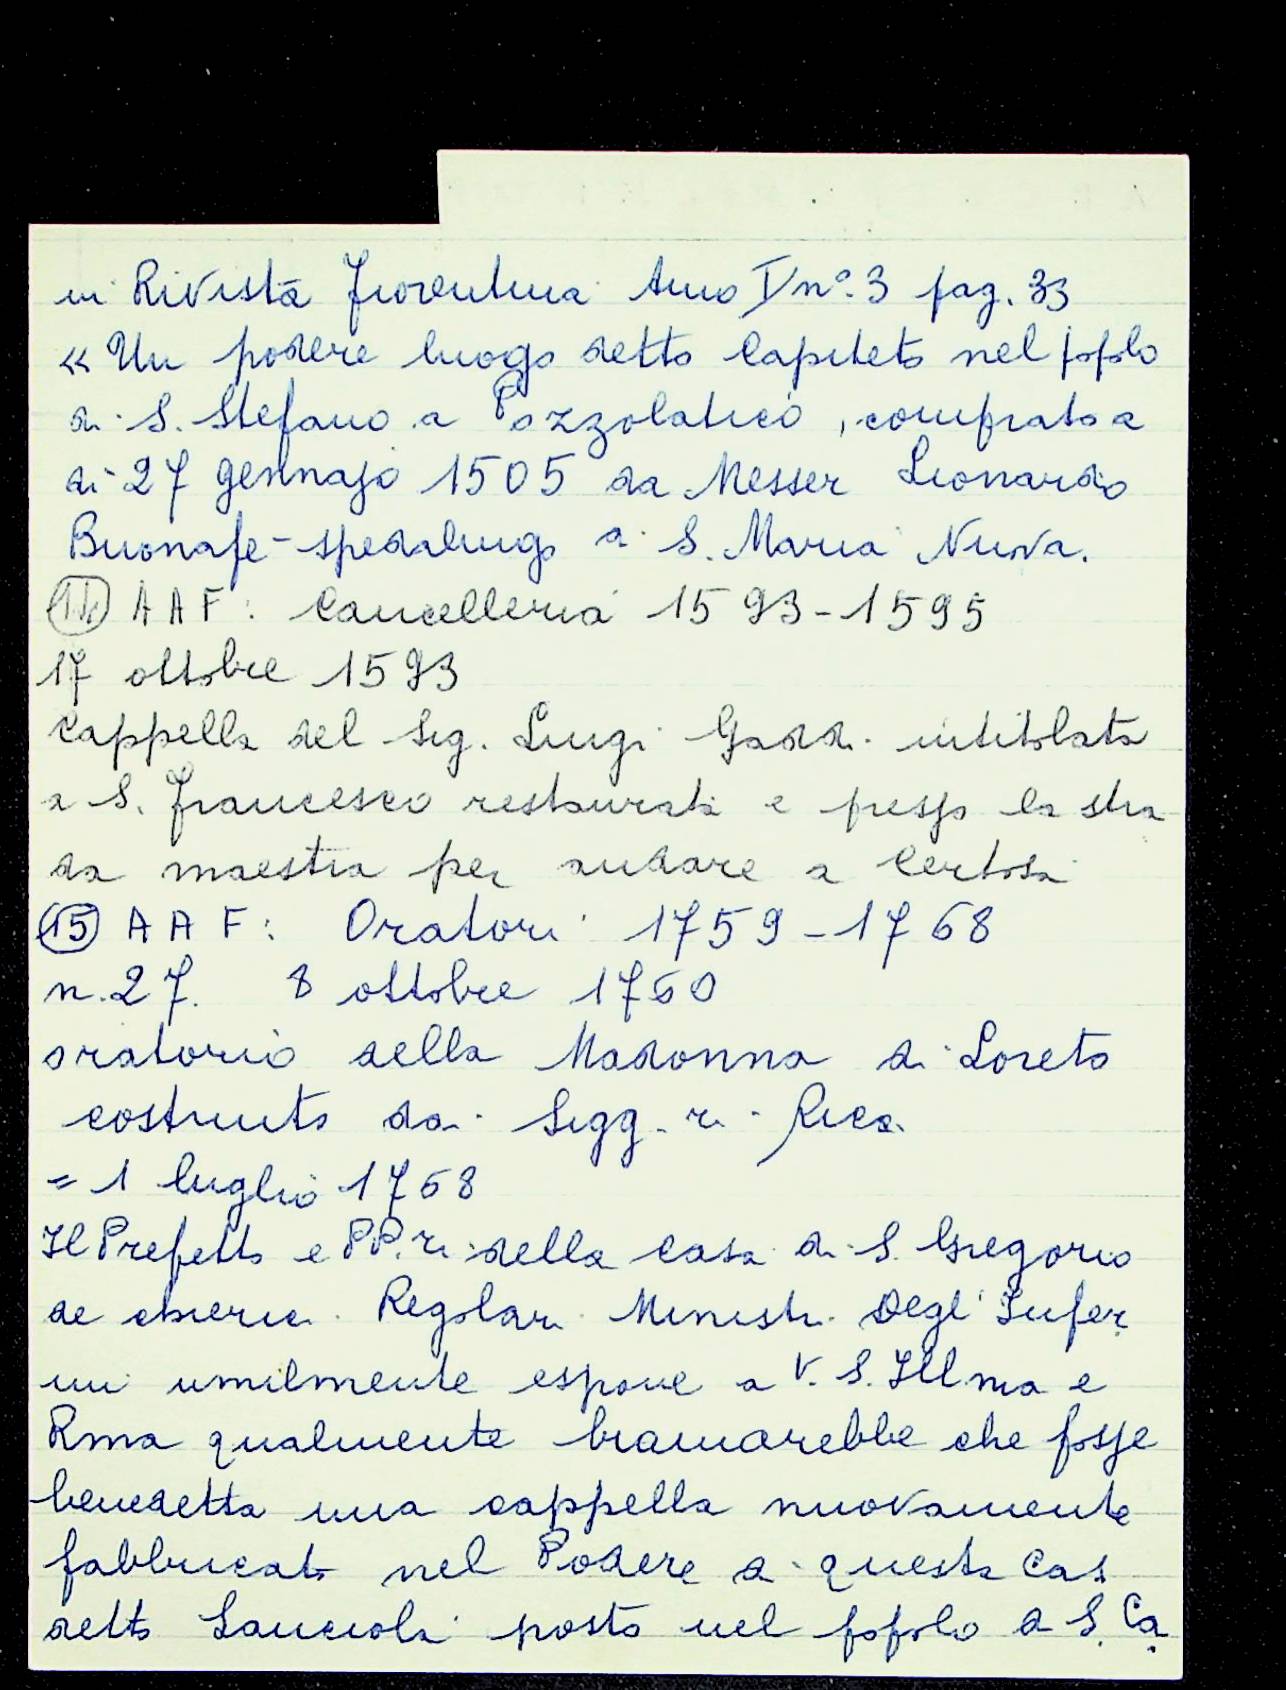 in Rivista Fiorentina Anno I n°. 3 pag. 33
« Un podere luogo detto Capiteto nel popolo
di S. Stefano a Pozzolatico, comprato a
di 27 gennajo 1505 da Messer Lionardo
Buonafe - spedalingo di S. Maria Nuova.
14 A A F: Cancelleria 1593-1595
17 ottobre 1593
Cappella del Sig. Luigi Gaddi intitolata
a S. Francesco restaurata e presso la stra
da maestra per andare a Certosa
15 A A F: Oratori 1759-1768
n. 27. 8 ottobre 1760
oratorio della Madonna di Loreto
costruito dai Sigg.ri Rica.
= 1 luglio 1768
Il Prefetto e PP.ri della Casa di S. Gregorio
de chierici Regolari Ministri Degl'Infer
mi umilmente espone a V. S. Ill.ma e
Rma qualmente bramarebbe che fosse
benedetta una cappella nuovamente
fabbricata nel Podere di questa Casa
detto Lanciola posto nel popolo di S. Ca